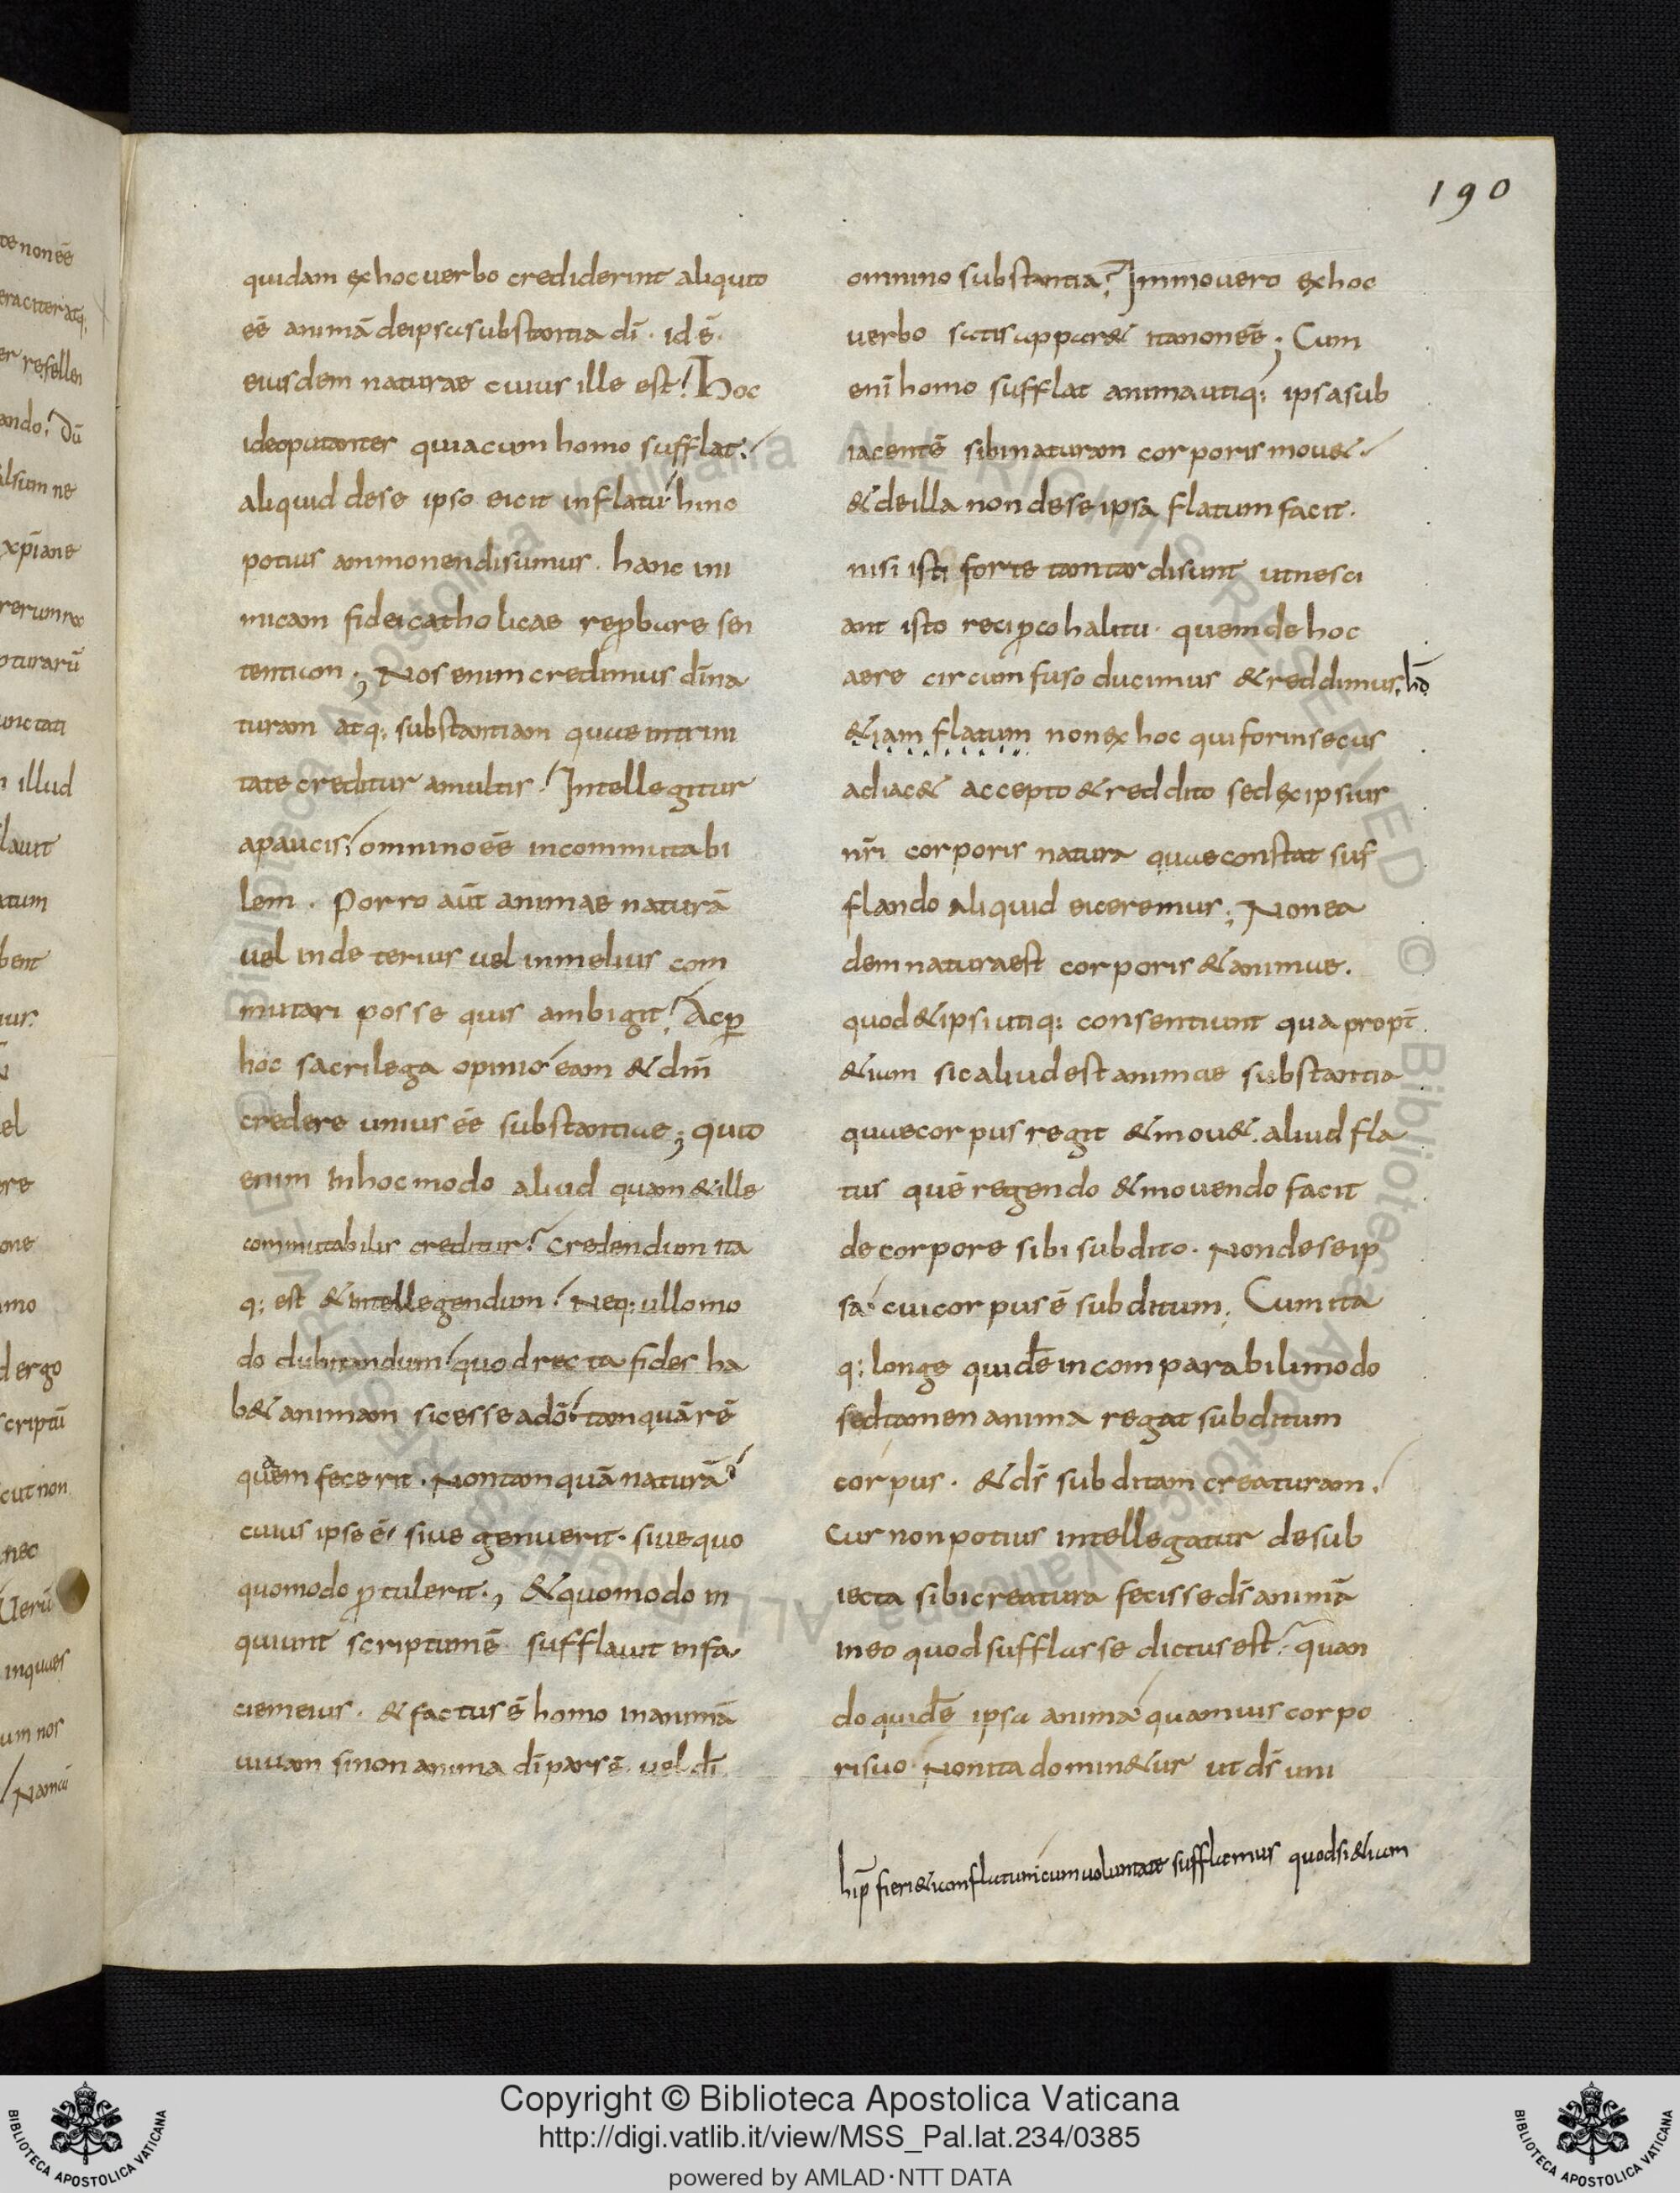 190
quidam ex hoc uerbo crediderint aliquid
eē animā de ipsa substantia dī · id ē·
eiusdem naturae cuius ille est? Hoc
ideo putantes quia cum homo sufflat?
aliquid de se ipso eicit in flatu? hinc
potius ammonendi sumus · hanc ini
micam fidei catholicae reꝓbare sen
tentiam ; Nos enim credimus dī na
turam atq; substantiam quae in trini
tate creditur a multis? Intellegitur
a paucis? omnino eē incommutabi
lem · Porro aūt animae naturā
uel in deterius uel in melius com
mutari posse quis ambigit? Ac ꝑ
hoc sacrilega opinio eam & dīn
credere unius eē substantiae ; quid
enim in hoc modo aliud quam & ille
commutabilis creditur? Credendum ita
q; est & intellegendum? Neq; ullo mo
do dubitandum? quod recta fides ha
b& animam sic esse a dō? tanquā rē
quā em fecerit · Non tanquā naturā?
cuius ipse ē? siue genuerit · siue quo
quomodo ꝓtulerit ; & quomodo in
quiunt scriptum ē · sufflauit in fa
ciem eius · & factus ē homo in animā
uiuam si non anima dī pars ē uel dī
omnino substantia? Immo uero ex hoc
uerbo satis appar& ita non eē ; Cum
eni homo sufflat anima utiq; ipsa sub
iacentē sibi naturam corporis mou&
& de illa non de se ipsa flatum facit ·
nisi isti forte tam tardi sunt ut nesci
ant isto reciꝓco halitu · quem de hoc
aere circumfuso ducimus & reddimus · hō
&iam flatum non ex hoc qui forinsecus
adiac& accepto & reddito sed ex ipsius
nr̄i corporis natura quae constat suf
flando aliquid eiceremus ; Non ea
dem natura est corporis & animae ·
quod & ipsi utiq; consentiunt qua propt̄
&iam sic aliud est animae substantia
quae corpus regit & mou& · aliud fla
tus quē regendo & mouendo facit
de corpore sibi subdito · Non de se ip
sa? cui corpus ē subditum · Cum ita
q; longe quidē incomparabili modo
sed tamen anima regat subditum
corpus · & ds̄ subditam creaturam ·
Cur non potius intellegatur de sub
iecta sibi creatura fecisse ds̄ animā
in eo quod sufflasse dictus est · quan
do quidē ipsa anima quamuis corpo
ri suo · Non ita domin&ur ut ds̄ uni
hīp fieri &iam flatum cum uoluntate sufflamus quod si &iam
Copyright © Biblioteca Apostolica Vaticana
http://digi.vatlib.it/view/MSS_Pal.lat.234/0385
powered by AMLAD·NTT DATA